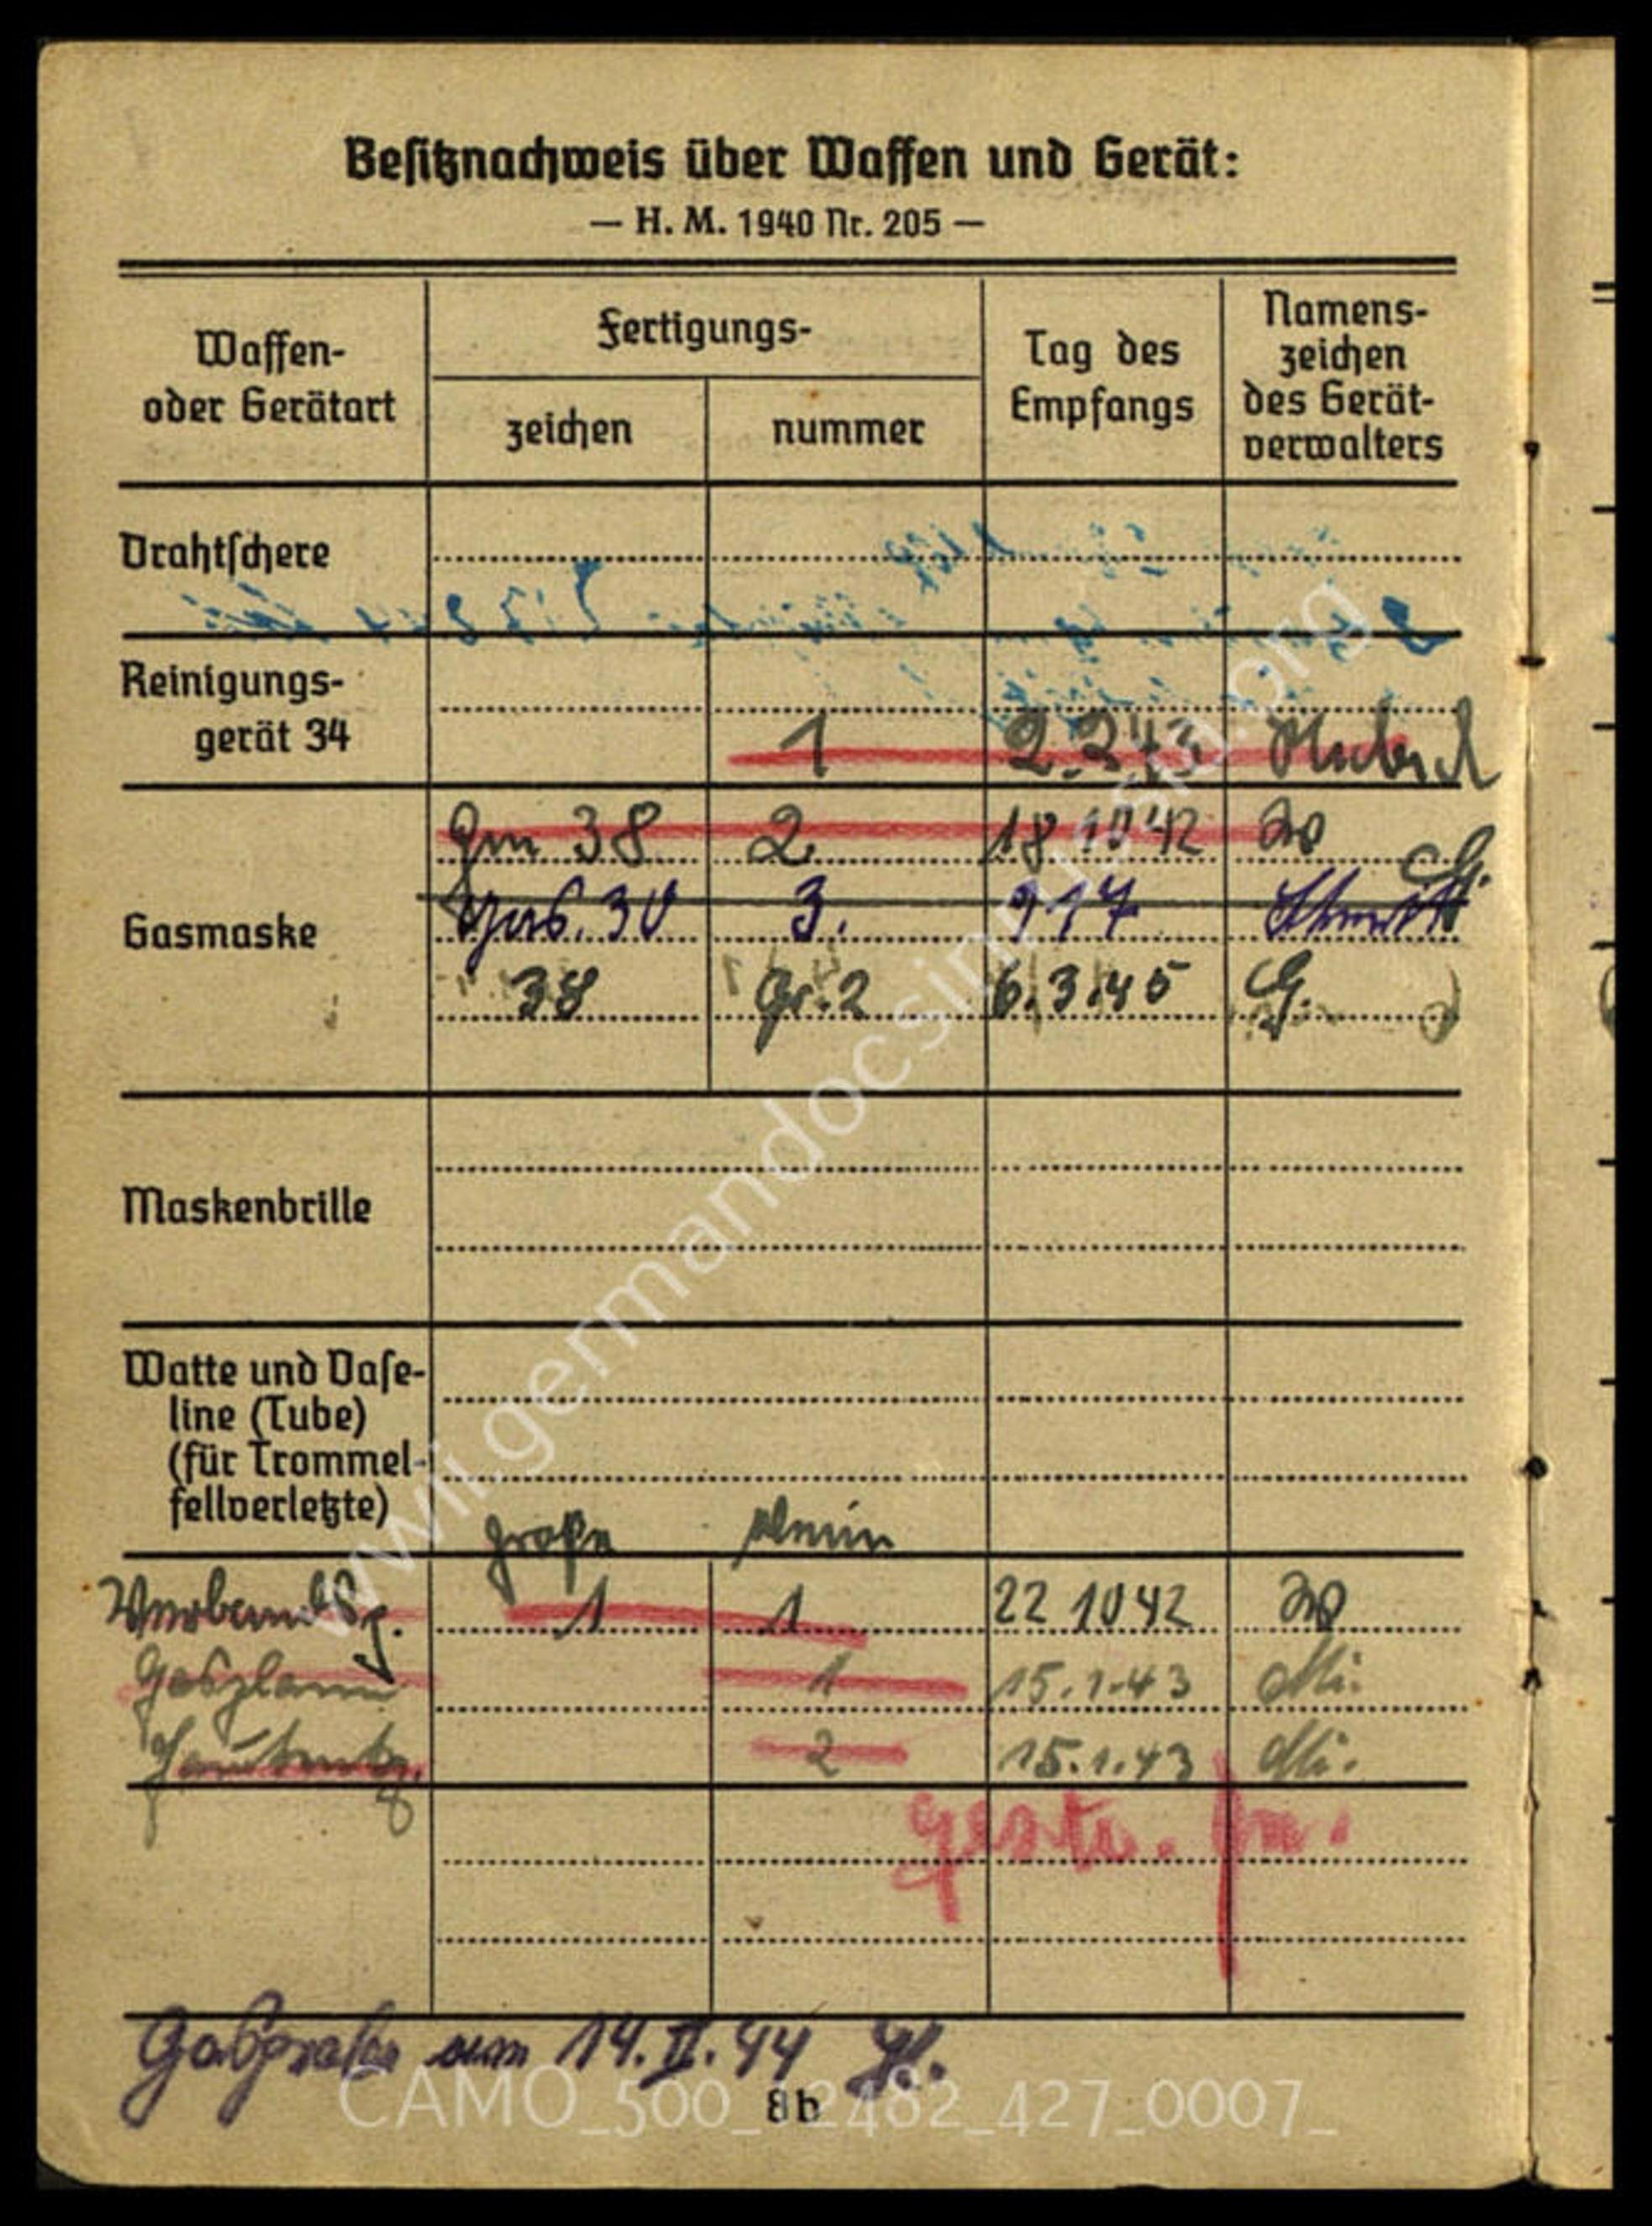 Besitznachweis über Waffen und Gerät:
— H. M. 1940 Nr. 205 —
Waffen-
oder Gerätart
Fertigungs-
zeichen
nummer
Tag des
Empfangs
Namens-
zeichen
des Gerät-
verwalters
Drahtschere
Reinigungs-
gerät 34
1 2.2.43
Gasmaske
Gm 38 2. 18 10 42
Gas. 30 3. 9 1 7 Schmidt
38 Gr. 2 6.3.45 G.
Maskenbrille
Watte und Vase-
line (Tube)
(für Trommel-
fellverletzte)
große klein
Verbandsg. 1 1 22 10 42
Gasplane 1 15.1.43 Mi.
Hautentg. 2 15.1.43 Mi.
gestr.
Gasprobe am 14.II.44
8b
www.germandocsinrussia.org
CAMO_500_12482_427_0007_